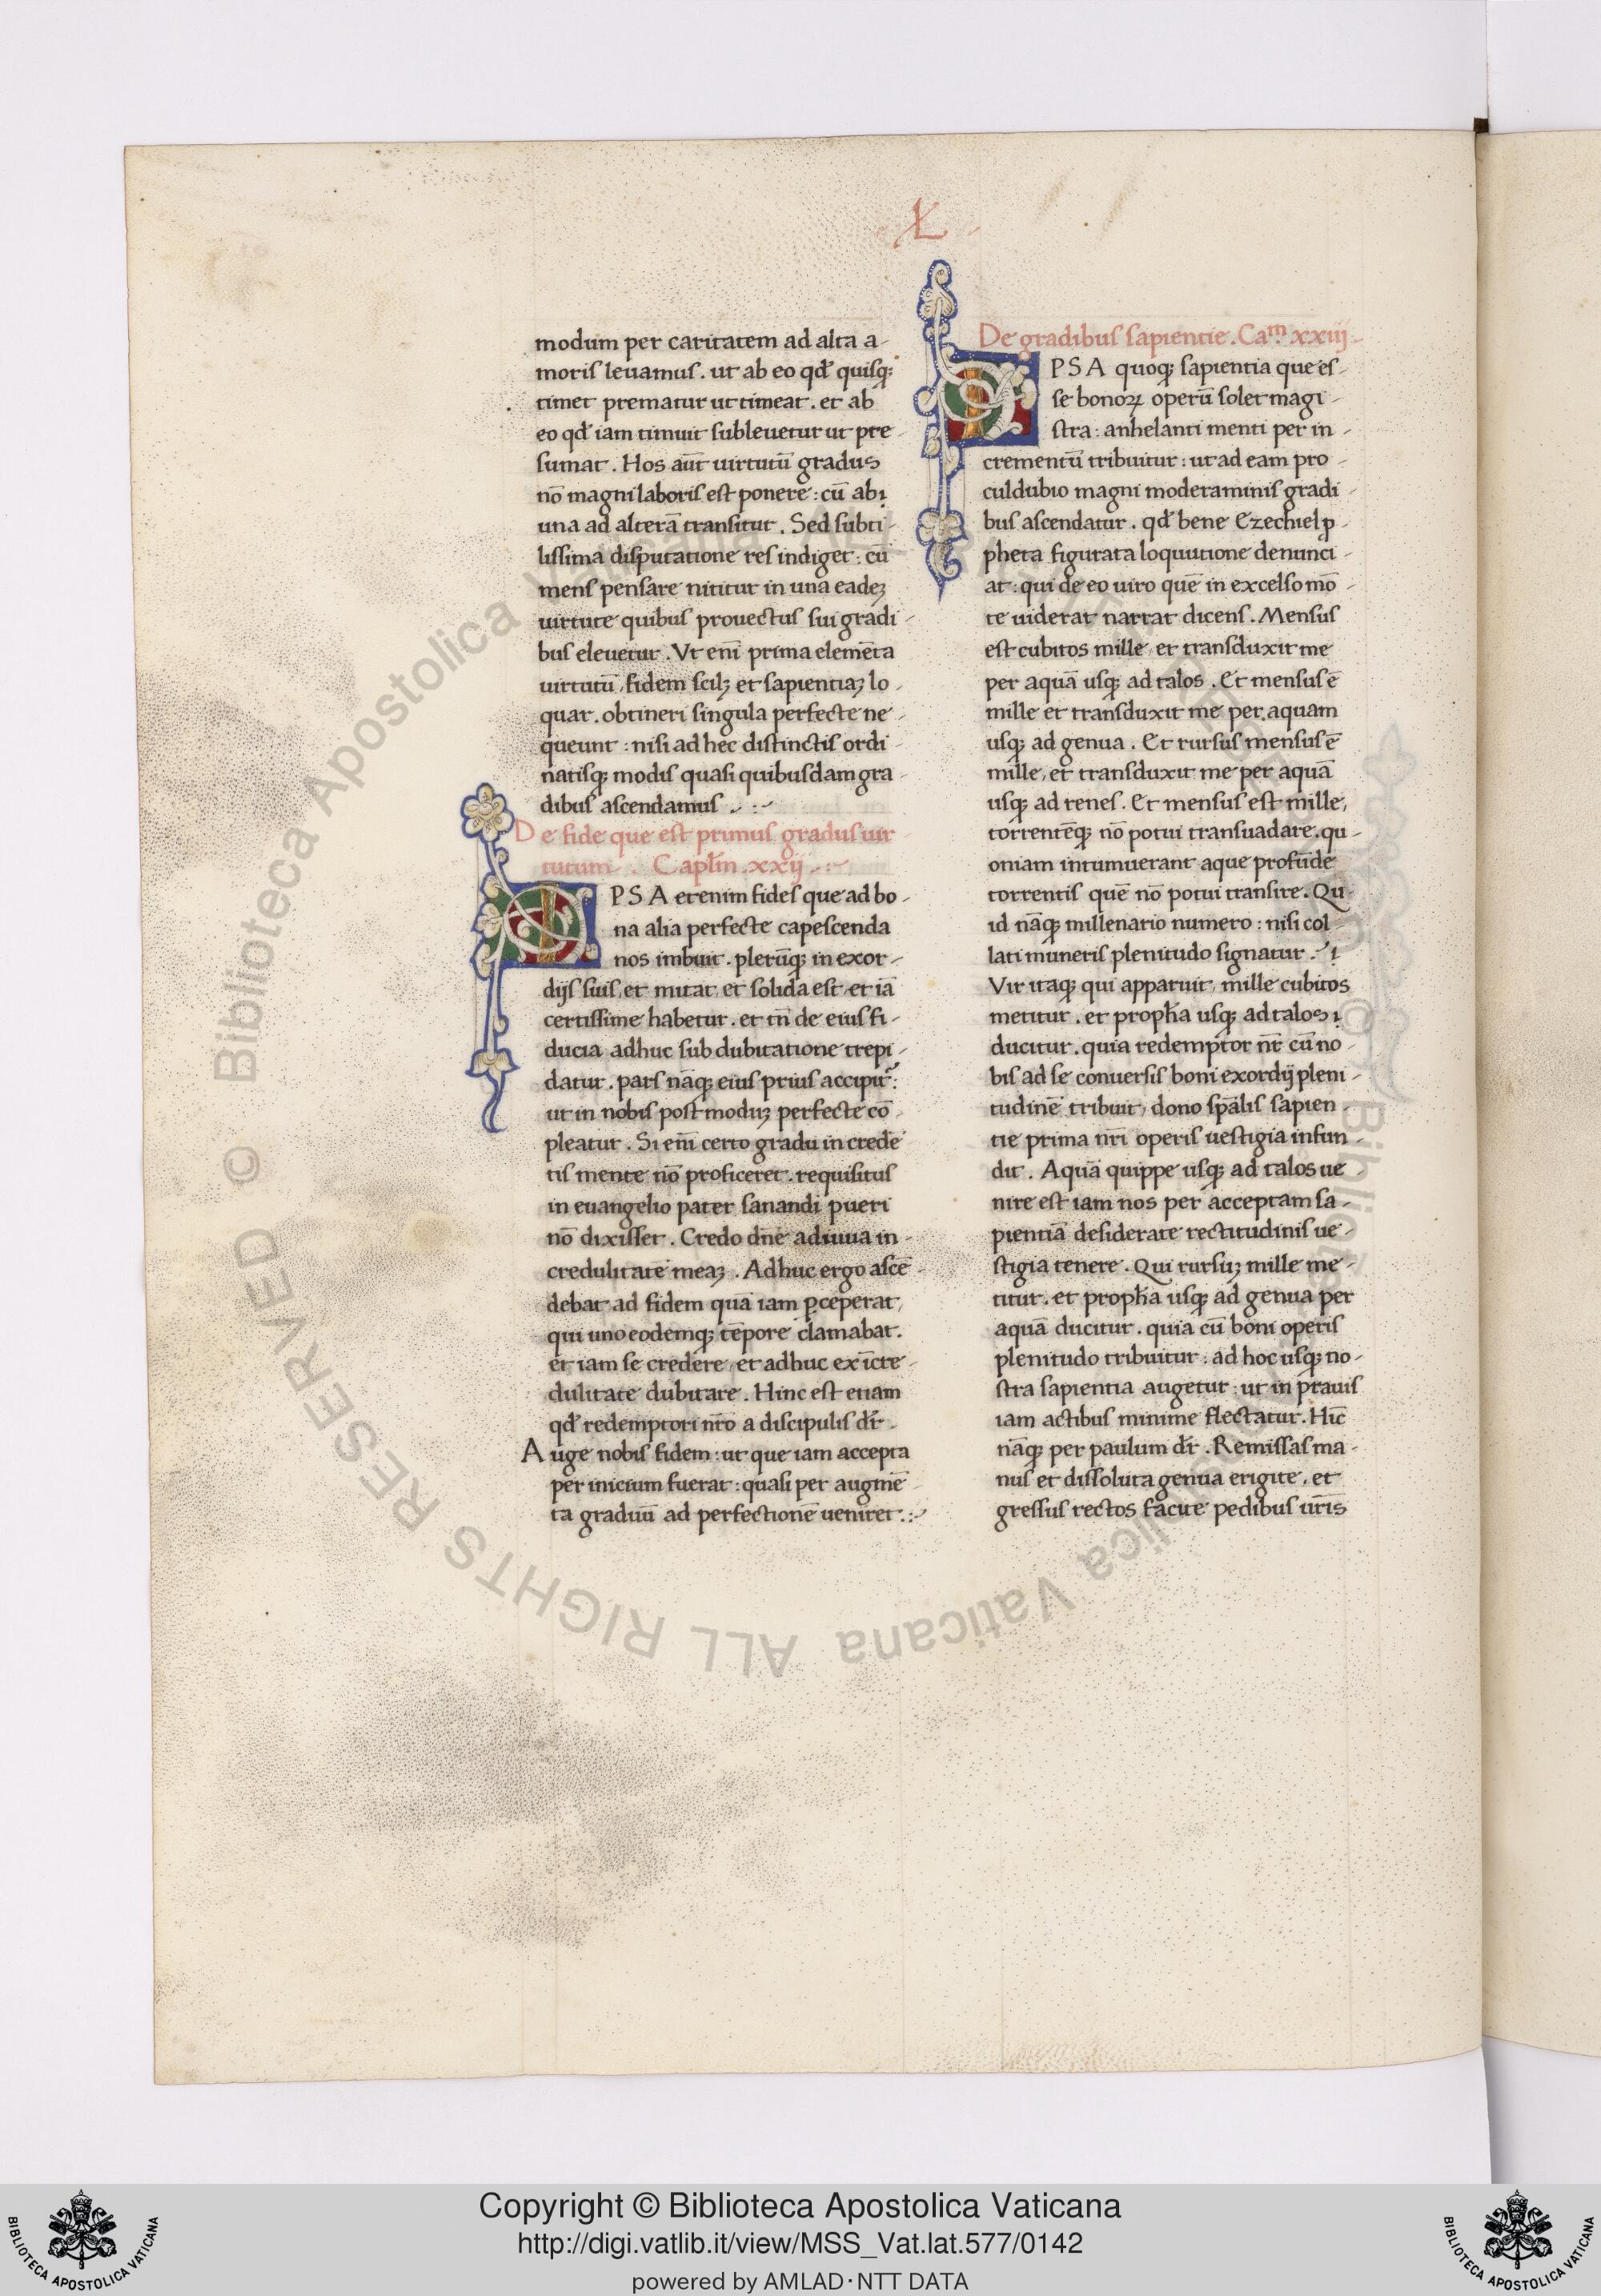 XL
modum per caritatem ad alta a-
moris leuamus. ut ab eo qđ quisqꝫ
timet prematur ut timeat. et ab
eo qđ iam timuit subleuetur ut pre-
sumat. Hos aūt uirtutū gradus
nō magni laboris est ponere: cū ab
una ad alterā transitur. Sed subti-
lissima disputatione res indiget: cū
mens pensare nititur in una eadeꝫ
uirtute quibus prouectus sui gradi-
bus eleuetur. Vt enī prima elemēta
uirtutū, fidem scilꝫ et sapientiaꝫ lo-
quar. obtineri singula perfecte ne-
queunt: nisi ad hec distinctis ordi-
natisqꝫ modis quasi quibusdam gra-
dibus ascendamus.:-
De fide que est primus gradus uir-
tutum. Capłm .xxij.:-
IPSA etenim fides que ad bo-
na alia perfecte capescenda
nos imbuit. plerūqꝫ in exor-
dijs suis, et nutat, et solida est, et iā
certissime habetur. et tn̄ de eius fi-
ducia adhuc sub dubitatione trepi-
datur. pars nāqꝫ eius prius accipit᷑:
ut in nobis post moduꝫ perfecte cō-
pleatur. Si enī certo gradu in credē
tis mente nō proficeret. requisitus
in euangelio pater sanandi pueri
nō dixisset. Credo dn̄e adiuua in-
credulitatē meaꝫ. Adhuc ergo ascē-
debat ad fidem quā iam ꝑceperat,
qui uno eodemqꝫ tēpore clamabat.
et iam se credere, et adhuc ex īcre-
dulitate dubitare. Hinc est etiam
qđ redemptori nr̄o a discipulis dr̄.
Auge nobis fidem: ut que iam accepta
per inicium fuerat: quasi per augmē-
ta graduū ad perfectionē ueniret.:-
De gradibus sapientie. Caᵐ. xxiij
IPSA quoqꝫ sapientia que es-
se bonoꝝ operū solet magi-
stra: anhelanti menti per in-
crementū tribuitur: ut ad eam pro-
culdubio magni moderaminis gradi-
bus ascendatur. qđ bene Ezechiel ꝓ-
pheta figurata loquutione denunci-
at: qui de eo uiro quē in excelso mō-
te uiderat narrat dicens. Mensus
est cubitos mille, et transduxit me
per aquā usqꝫ ad talos. Et mensus ē
mille et transduxit me per aquam
usqꝫ ad genua. Et rursus mensus ē
mille, et transduxit me per aquā
usqꝫ ad renes. Et mensus est mille,
torrentēqꝫ nō potui transuadare. qu-
oniam intumuerant aque profūde
torrentis quē nō potui transire. Qu-
id nāqꝫ millenario numero: nisi col-
lati muneris plenitudo signatur.
Vir itaqꝫ qui apparuit, mille cubitos
metitur. et propħa usqꝫ ad talos
ducitur. quia redemptor nr̄ cū no-
bis ad se conuersis boni exordij pleni-
tudinē tribuit, dono sp̄alis sapien-
tie prima nr̄i operis uestigia infun-
dit. Aquā quippe usqꝫ ad talos ue-
nire est iam nos per acceptam sa-
pientiā desiderate rectitudinis ue-
stigia tenere. Qui rursuꝫ mille me-
titur. et propħa usqꝫ ad genua per
aquā ducitur. quia cū boni operis
plenitudo tribuitur: ad hoc usqꝫ no-
stra sapientia augetur: ut in prauis
iam actibus minime flectatur. Hīc
nāqꝫ per paulum dr̄. Remissas ma-
nus et dissoluta genua erigite, et
gressus rectos facite pedibus ur̄is
© Biblioteca Apostolica Vaticana ALL RIGHTS RESERVED
Copyright © Biblioteca Apostolica Vaticana
http://digi.vatlib.it/view/MSS_Vat.lat.577/0142
powered by AMLAD·NTT DATA
BIBLIOTECA APOSTOLICA VATICANA
BIBLIOTECA APOSTOLICA VATICANA